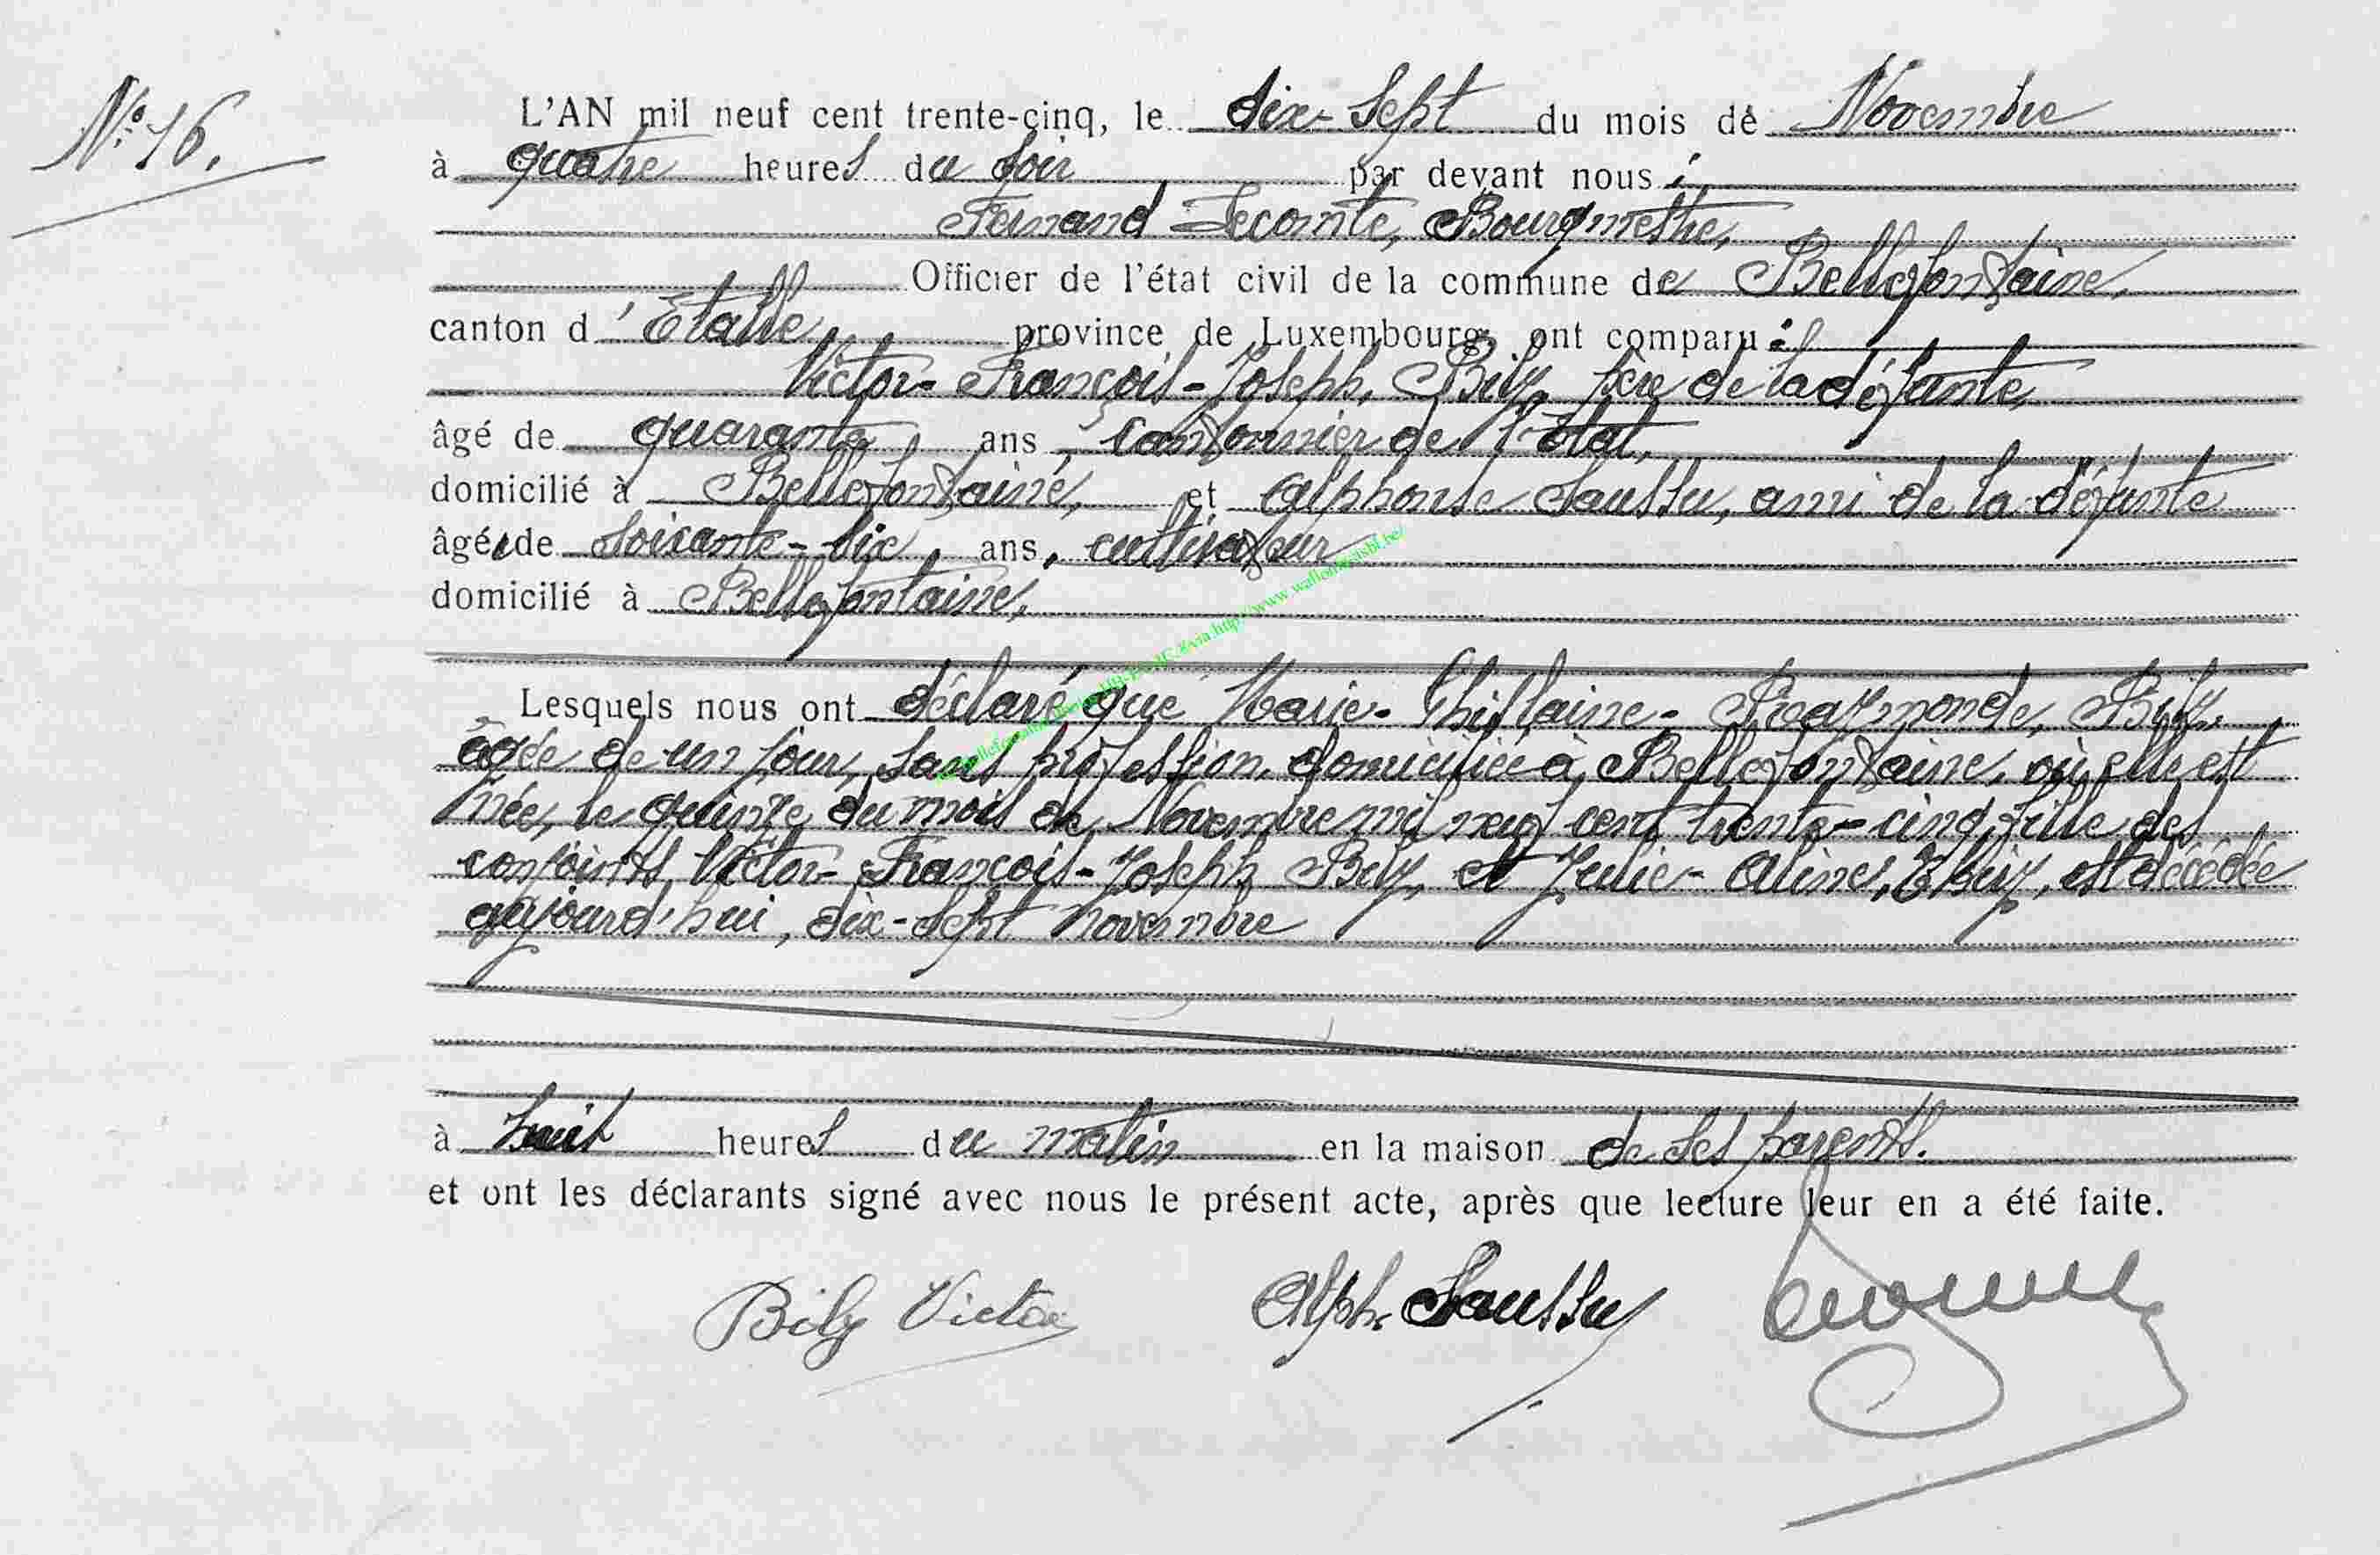 N° 16.
L'AN mil neuf cent trente-cinq, le dix-sept du mois de Novembre
à quatre heures du soir par devant nous :
Fernand Lecomte, Bourgmestre,
Officier de l'état civil de la commune de Bellefontaine,
canton d'Etalle, province de Luxembourg, ont comparu :
Victor-François-Joseph, Bily, père de la défunte,
âgé de quarante ans, cantonnier de l'Etat,
domicilié à Bellefontaine, et Alphonse Saussu, ami de la défunte
âgé de soixante-six, ans, cultivateur
domicilié à Bellefontaine,
Lesquels nous ont déclaré que Marie-Ghislaine-Raymonde, Bily,
âgée de un jour, sans profession, domiciliée à Bellefontaine, où elle est
née, le quinze du mois de Novembre mil neuf cent trente-cinq, fille des
conjoints Victor-François-Joseph Bily, et Julie-Aline, est décédée
aujourd'hui, dix-sept novembre
à huit heures du matin en la maison de ses parents.
et ont les déclarants signé avec nous le présent acte, après que lecture leur en a été faite.
Bily Victor Alph. Saussu